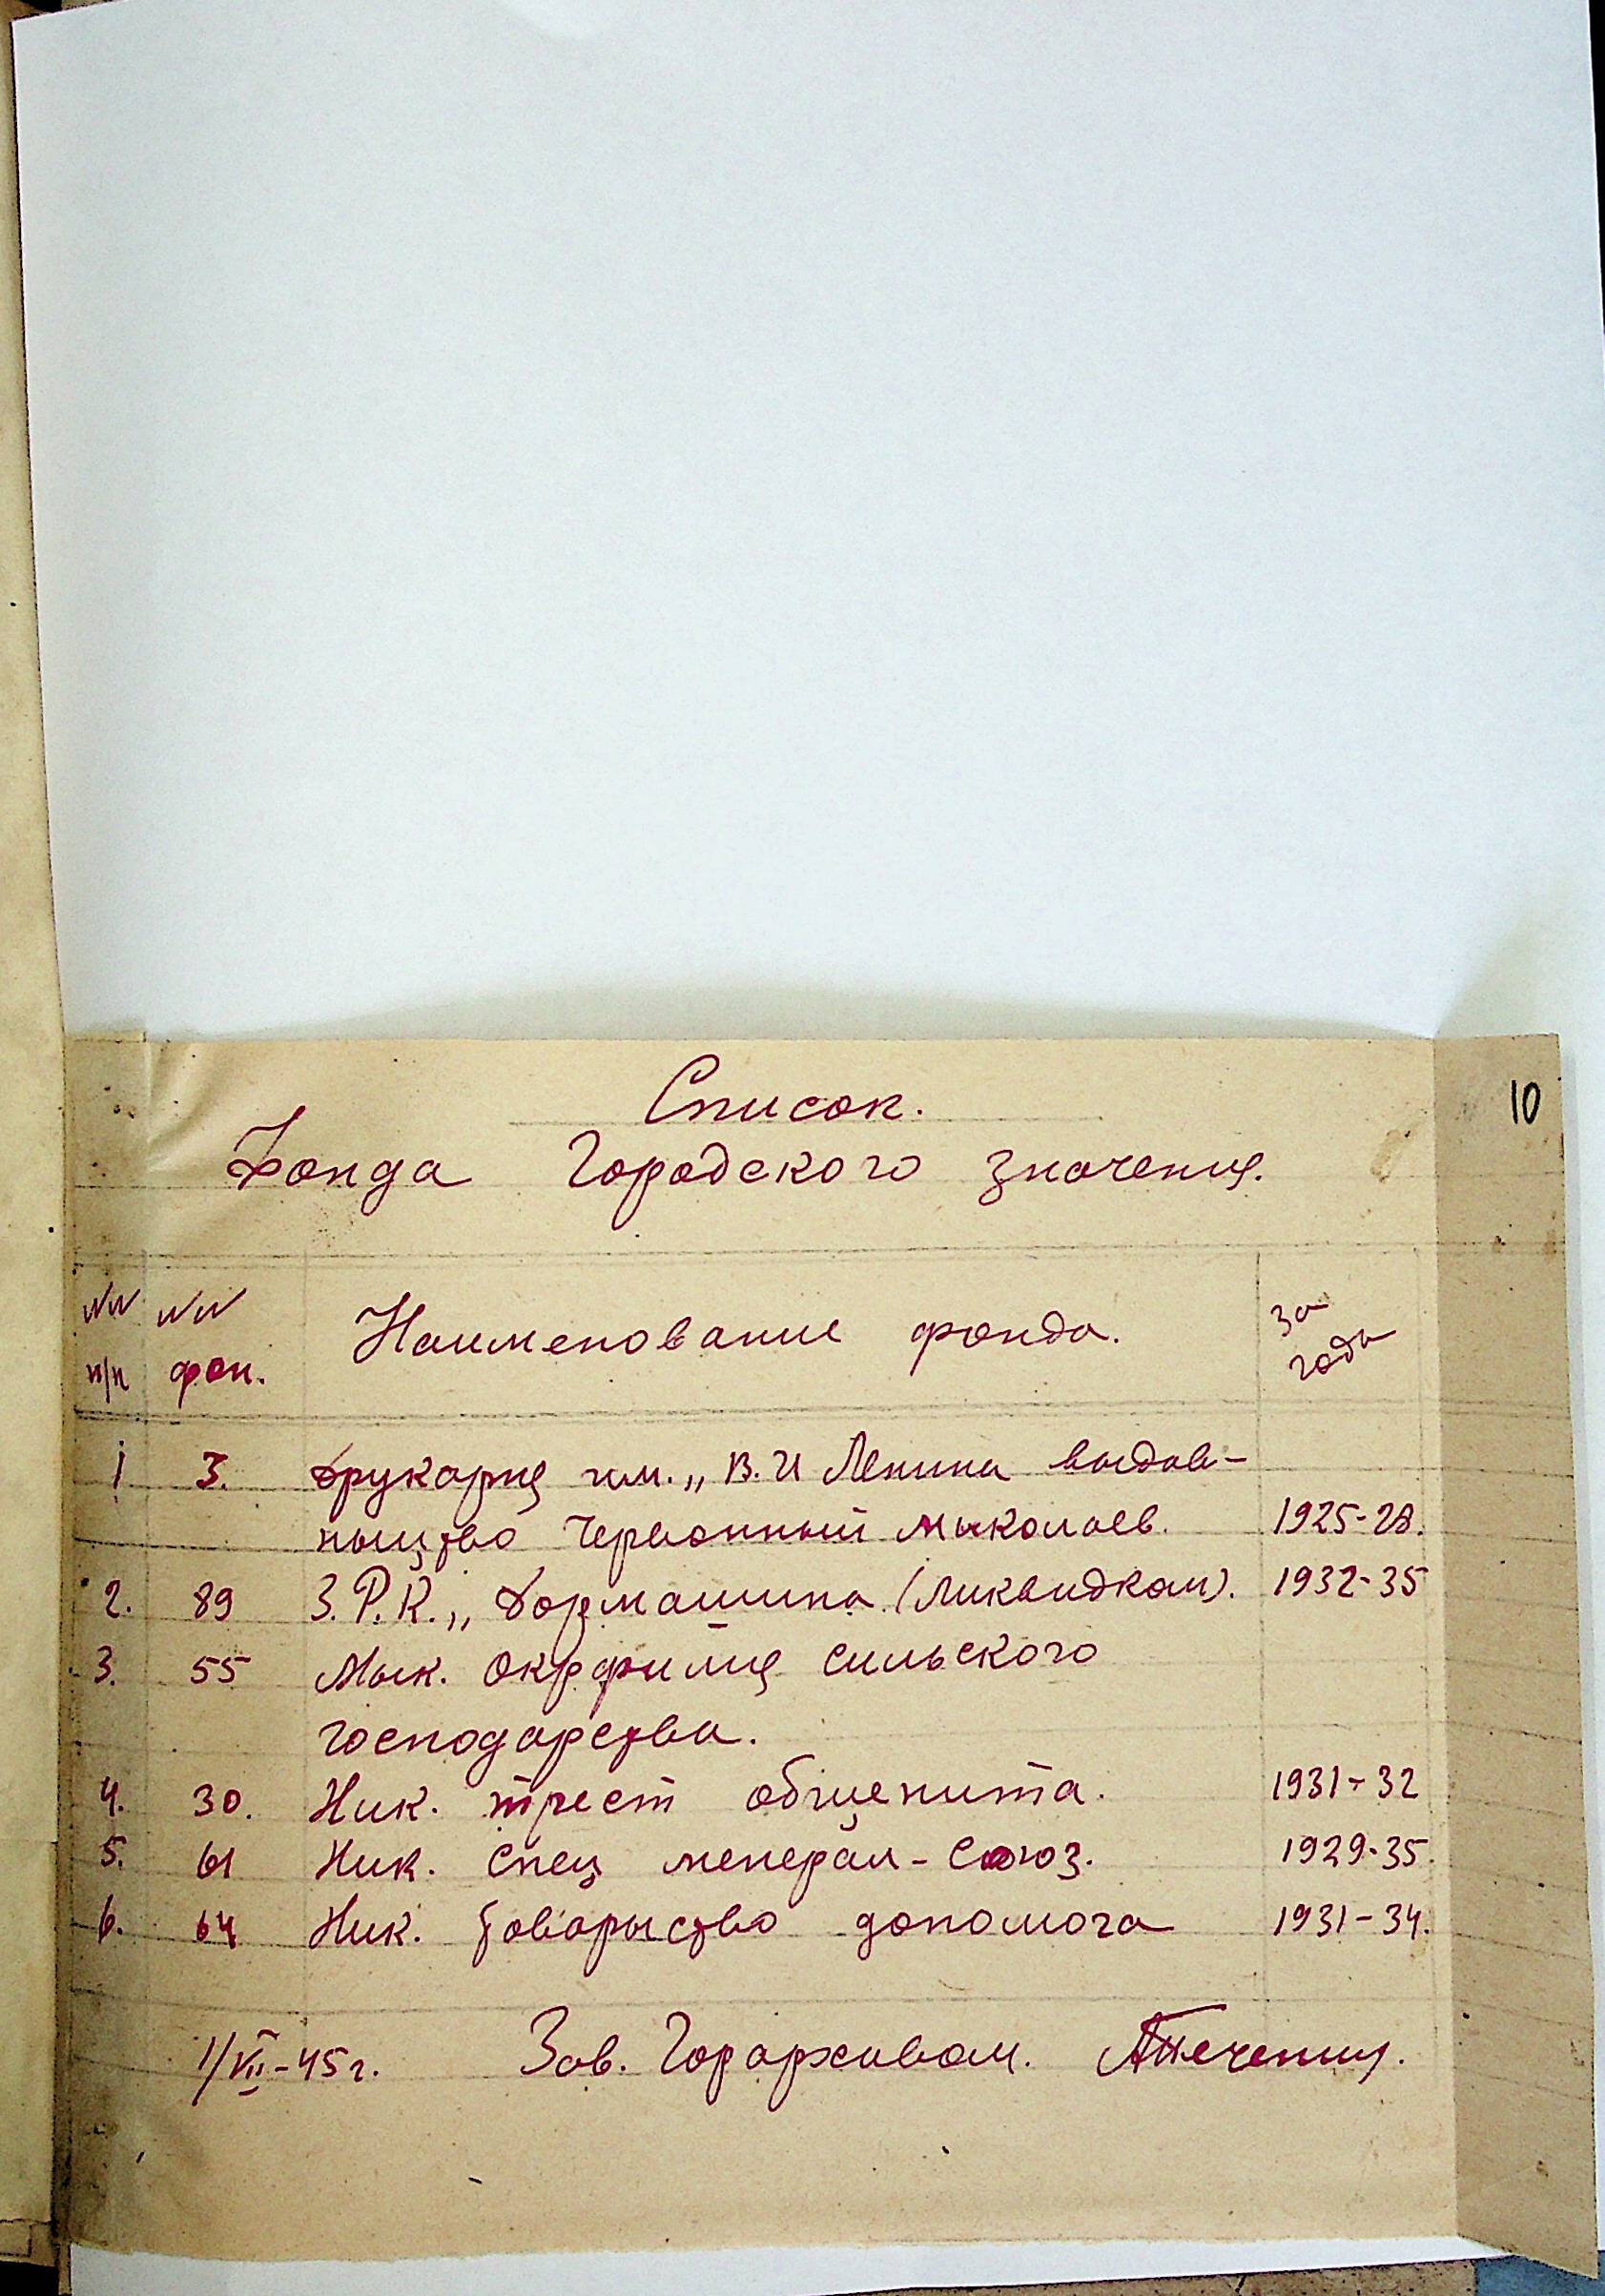 10
Список.
Фонда Городского значения.
NN NN Наименование фонда. За
п/п фон. годы
1 3. Друкарня им. „В. И Ленина выдав-
ныцтво Червонный Мыколаев. 1925-28.
2. 89 З.Р.К. „Дормашина (Ликвидком). 1932-35
3. 55 Мык. Окрфилия сильского
господарства.
4. 30. Ник. трест общепита. 1931-32
5. 61 Ник. Спец - Союз. 1929-35.
6. 64 Ник. товарыство допомога 1931-34.
1/VII-45 г. Зав. Горархивом.